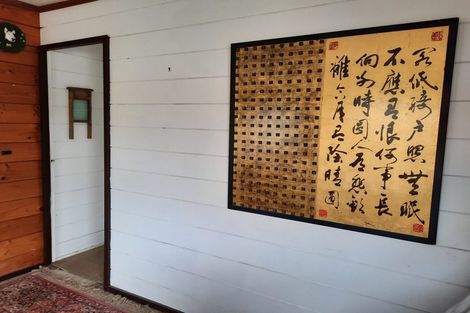 閣低綺戶照無眠
不應有恨何事長
向別時圓人有悲歡
離合月有陰晴圓